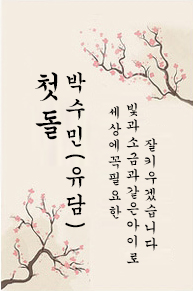 첫돌
박수민(유담)
세상에 꼭 필요한
빛과 소금과 같은 아이로
잘 키우겠습니다